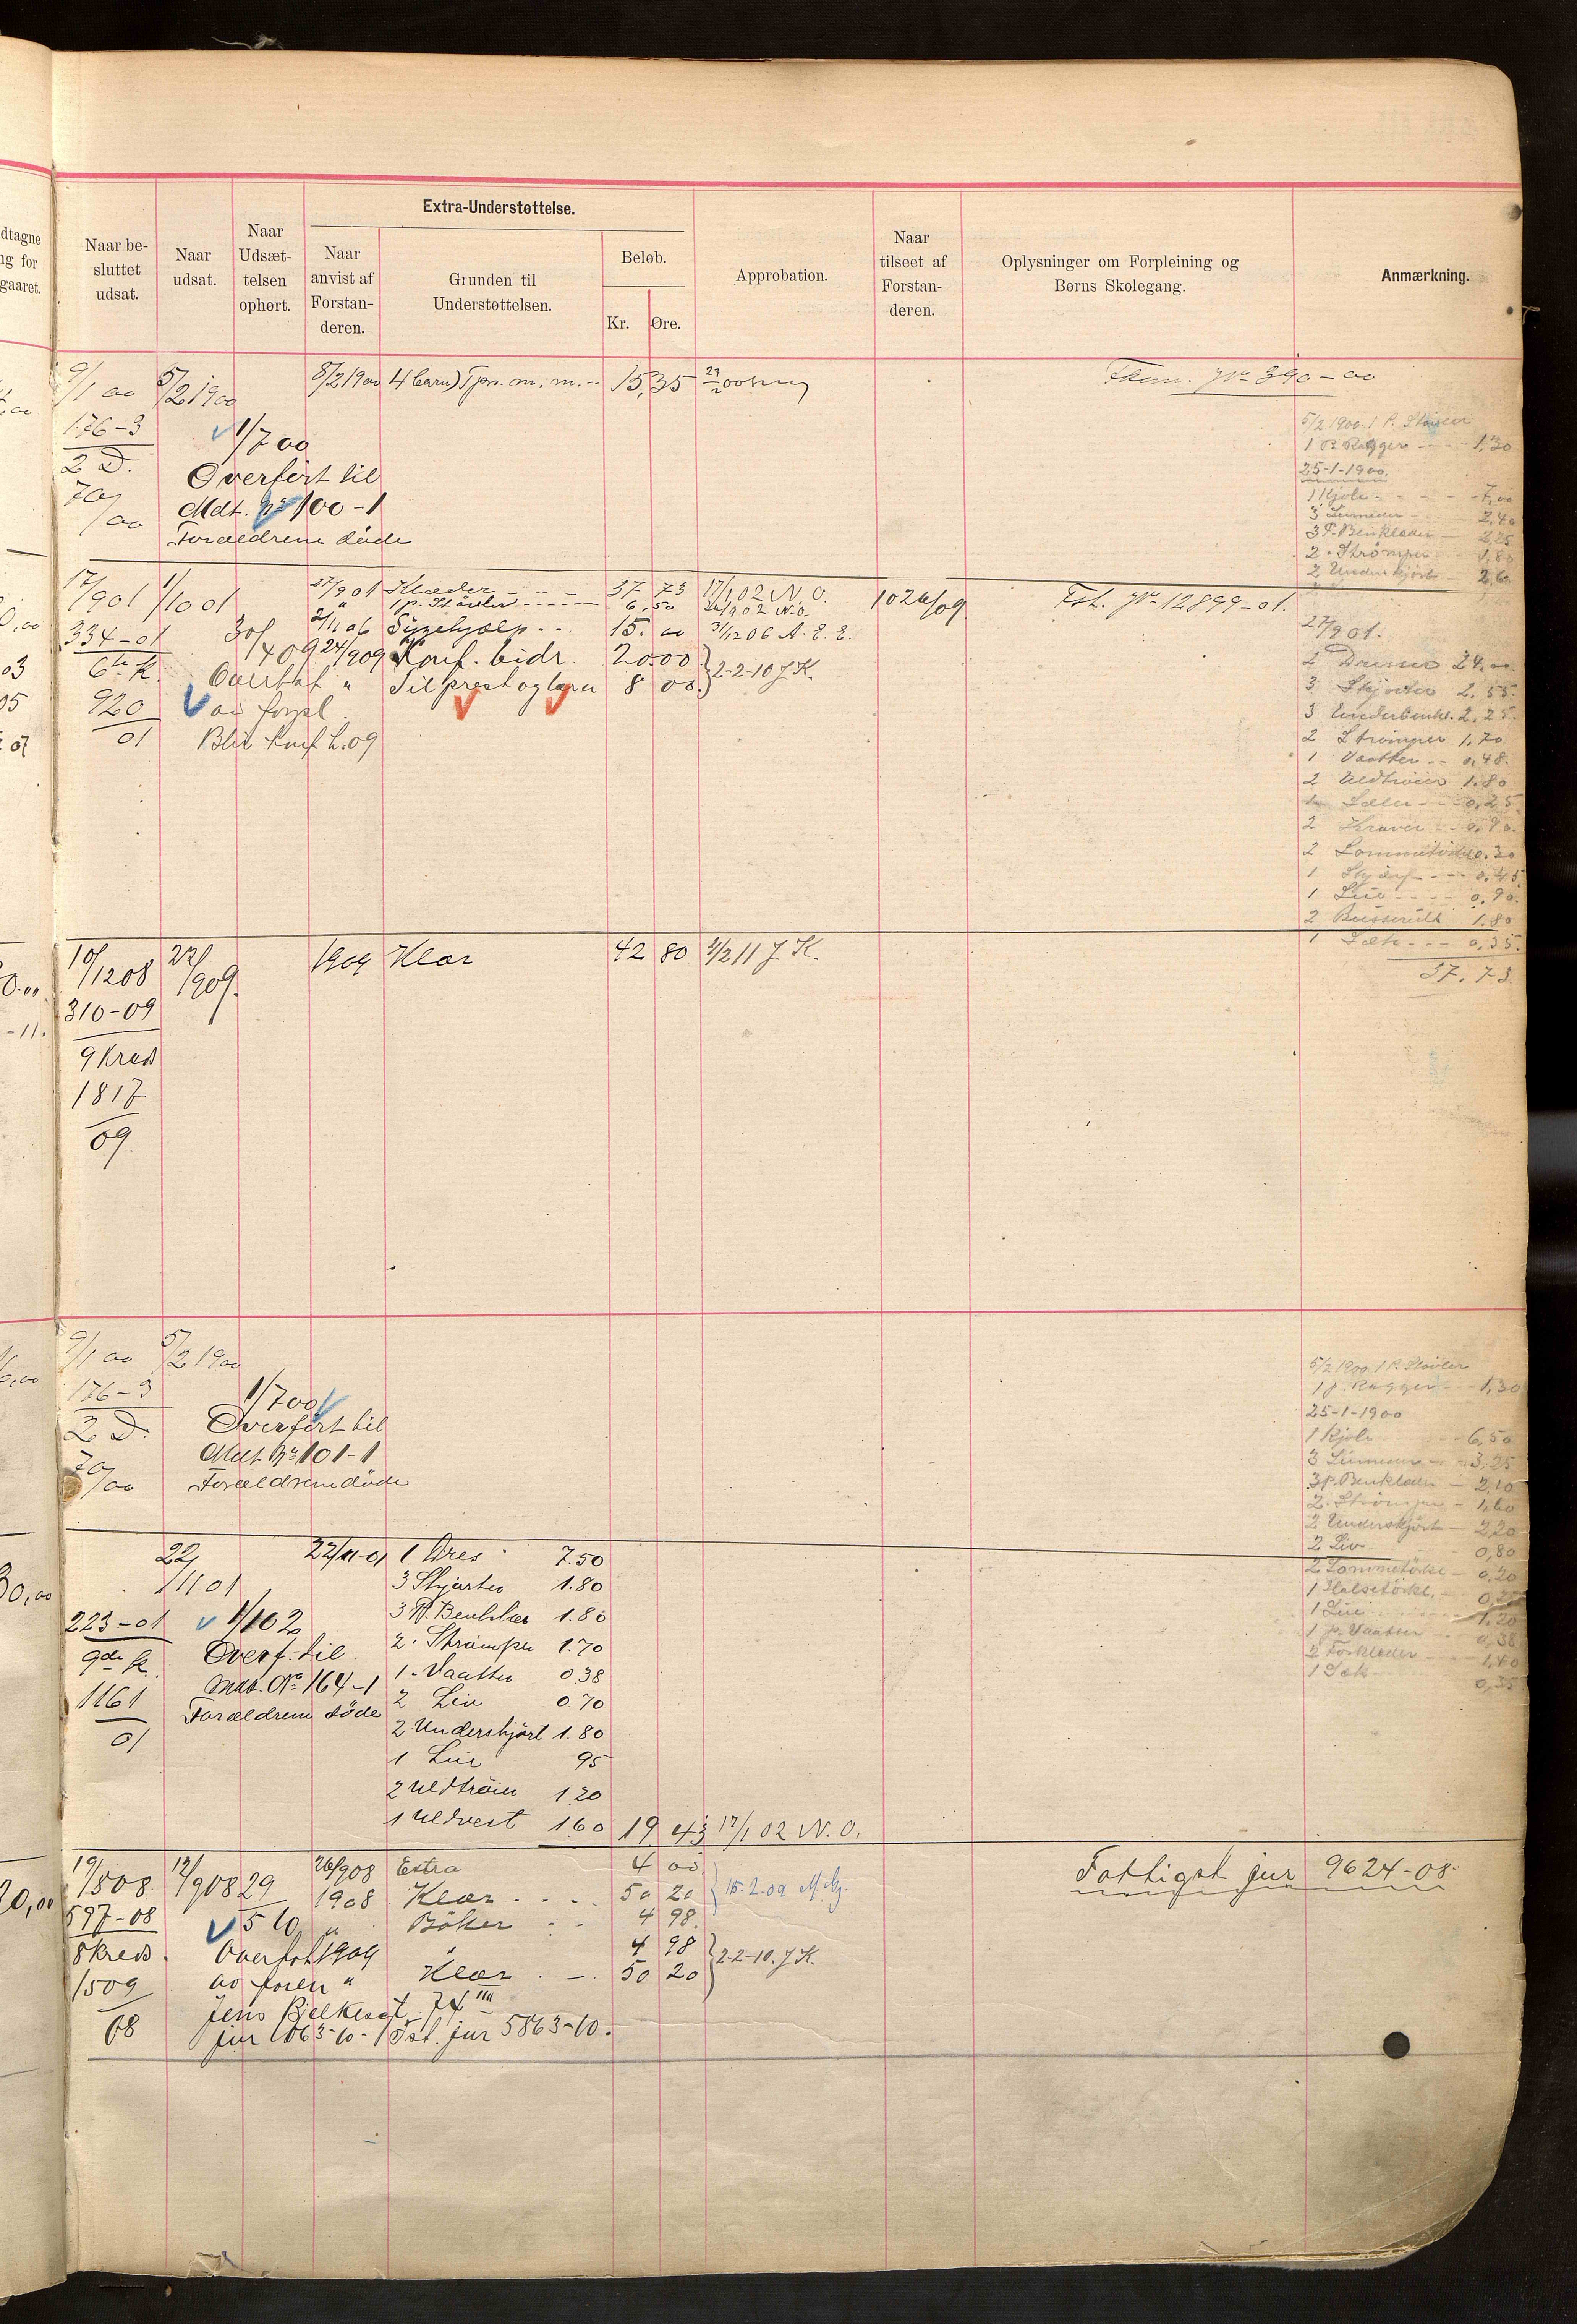 dtagne
ng for
gaaret.
Naar be-
sluttet
udsat.
Naar
udsat.
Naar
Udsæt-
telsen
ophørt.
Extra-Understøttelse.
Naar
anvist af
Forstan-
deren.
Grunden til
Understøttelsen.
Beløb.
Kr. Øre.
Approbation.
Naar
tilseet af
Forstan-
deren.
Oplysninger om Forpleining og
Børns Skolegang.
Anmærkning.
9/1 00 5/2 1900 8/2 1900 4 barns m. m. 15,35
390-00
176-3
2 D.
70/00
1/7 00
Overført til
Mdt. No 100-1
Forældrene døde
5/2 1900. 1 P. Støvler
1 P. Ragger 1,30
25-1-1900.
1 Kjole 7,00
3 Linneder 2,40
3 P. Benklæder 2,25
2 " Strømper 1,80
2 Underskjørt 2,60
17/9 01 1/10 01 27/9 01 Klæder 37 73 17/1 02 N. O.
" 1 p. Støvler 6,50 N.O.
2/11 06 Sygehjælp 15.00 31/12 06 A. E. E.
24/9 09 Konf. bidr. 20.00
" Til prest og lærer 8 00 2-2-10 J K.
10 26/09
Fst. Jr 12899-01.
334-01
6te K.
920
01
30/4 09
Overtat
av forpl.
Blir konf. h. 09
27/9 01.
2 Dresser 24.00
3 Skjorter 2.55
3 Underbenkl. 2.25
2 Strømper 1.70
1 Vaatter 0.48
2 Uldtrøier 1.80
1 Seler 0.25
2 Kraver 0.90
2 Lommetørkl. 0.30
1 Skjærf 0.45
1 Lue 0.90
2 Busserull 1.80
1 Sæk 0.35
37.73
10/12 08 22/1 909. 1909 Klær 42 80 4/2 11 J K.
310-09
9 Kreds
1817
09.
9/1 00 5/2 1900
176-3
2 D.
70/00
1/7 00
Overført til
Mdt No 101-1
Forældrene døde
5/2 1900 1 P. Støvler
1 p. Ragger 1,30
25-1-1900
1 Kjole 6,50
3 Linneder 3,25
3 p. Benklæder 2,10
2 Strømper 1,60
2 Underskjørt 2,20
2 Liv 0,80
2 Lommetørkl. 0,20
1 Halstørkl.
1 Lue 1,20
1 p. Vaatter 0,38
2 Forklæder 1,40
1 Sæk 0,35
22/11 01 22/11-01 1 Dres 7.50
3 Skjorter 1.80
3 P. Benklær 1.80
2 " Strømper 1.70
1 " Vaatter 0 38
2 Liv 0.70
2 Underskjørt 1.80
1 Lue 95
2 Uldtrøier 1 20
1 Uldvest 1.60 19 43 17/1 02 N. O.
223-01
9de K.
1161
01
1/1 02
Overf. til
Mdt. No 164-1
Forældrene døde
19/5 08 12/9 08 26/9 08 Extra 4 00
1908 Klær 50 20 15.2.09
" Bøker 4 98.
1909 " 4 98
" Klær 50 20 2-2-10. J K.
597-08
8 Kreds
1509
08
29/5 10
Overtat
av foren
Jens Bjelkesgt. 74 III
jur 1063-10 - Fst. jur 5863-10.
Fattigst jur 9624-08